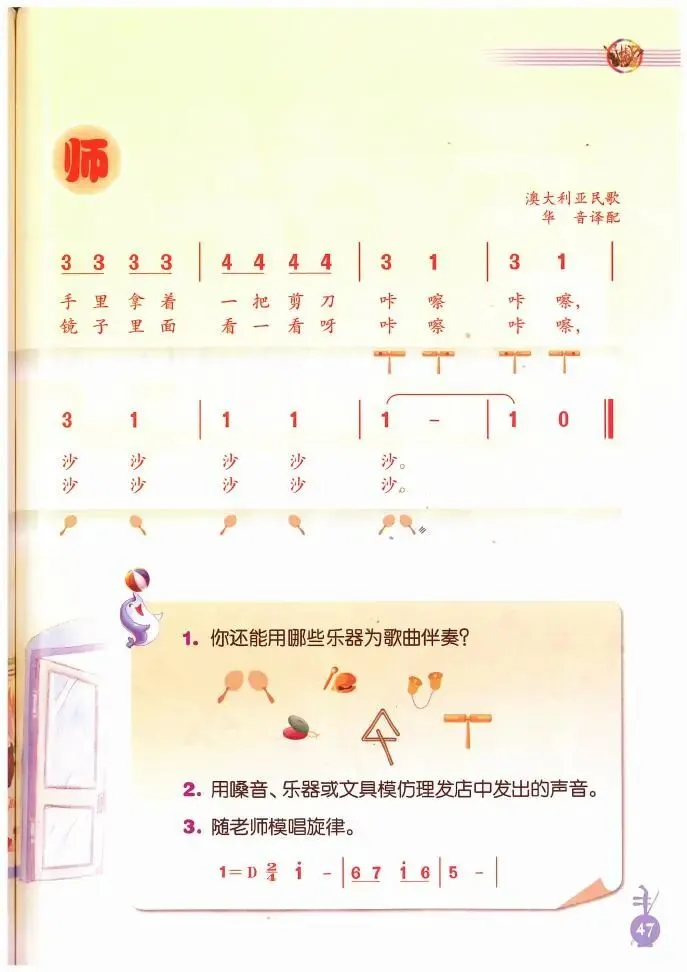 师
澳大利亚民歌
华 音译配
3 3 3 3 | 4 4 4 4 | 3 1 | 3 1 |
手里拿着 一把剪刀 咔嚓 咔嚓,
镜子里面 看一看呀 咔嚓 咔嚓,
3 1 | 1 1 | 1 - | 1 0 ‖
沙 沙 沙 沙 沙。
沙 沙 沙 沙 沙。
1. 你还能用哪些乐器为歌曲伴奏?
2. 用嗓音、乐器或文具模仿理发店中发出的声音。
3. 随老师模唱旋律。
1=D 2/4 i - | 6 7 i 6 | 5 - |
47